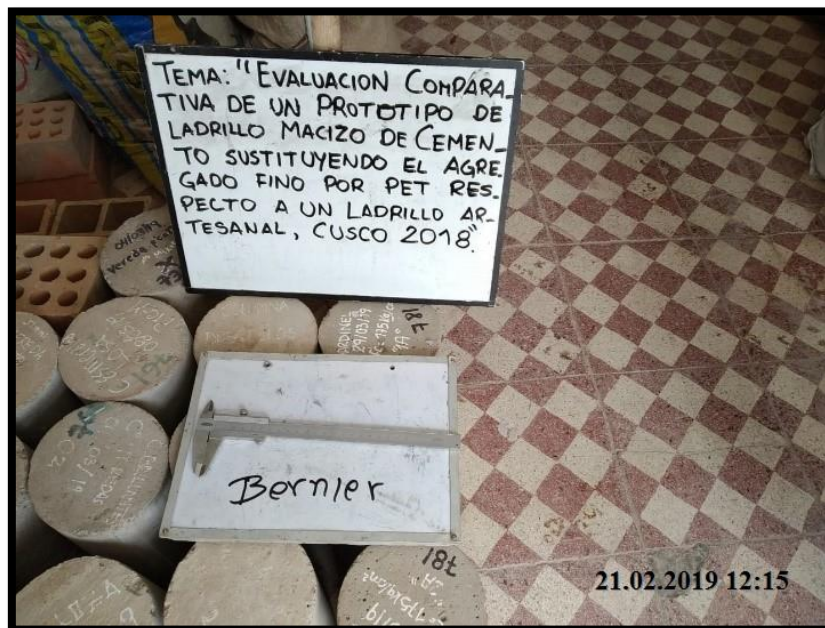 TEMA: "EVALUACION COMPARA_
TIVA DE UN PROTOTIPO DE
LADRILLO MACIZO DE CEMEN_
TO SUSTITUYENDO EL AGRE_
GADO FINO POR PET RES_
PECTO A UN LADRILLO AR_
TESANAL, CUSCO 2018".
781
29/03/19
Bernier
781
21.02.2019 12:15